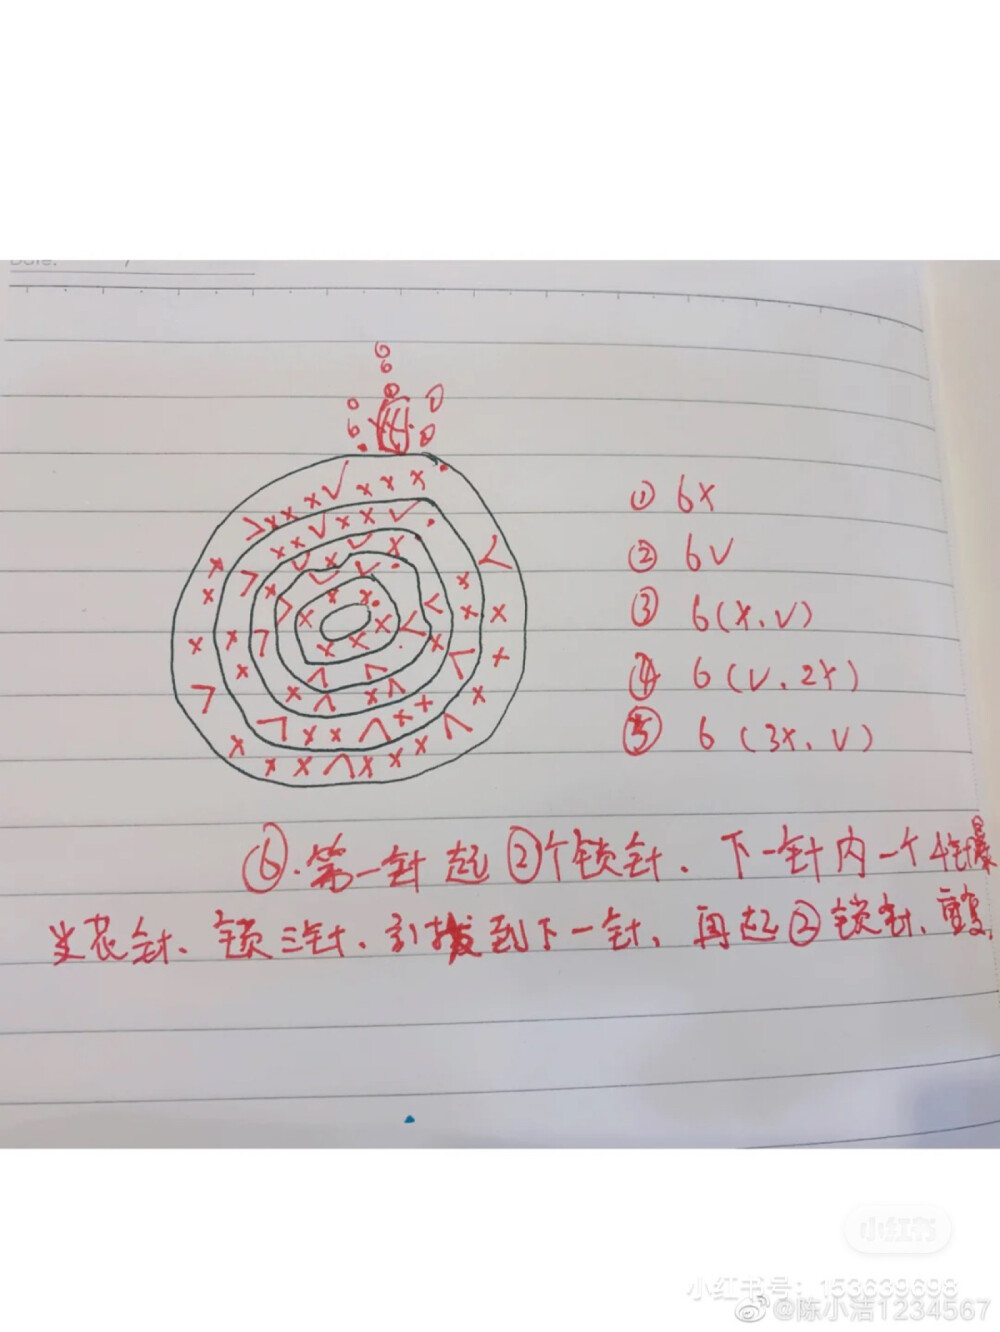 Date:
① 6X
② 6V
③ 6(X.V)
④ 6(V.2X)
⑤ 6(3X.V)
⑥.第一针起②个锁针.下一针内一个4针爆
米花针、锁三针.引拔到下一针,再起②锁针、重复.
小红书
小红书号:153639698
@陈小洁1234567